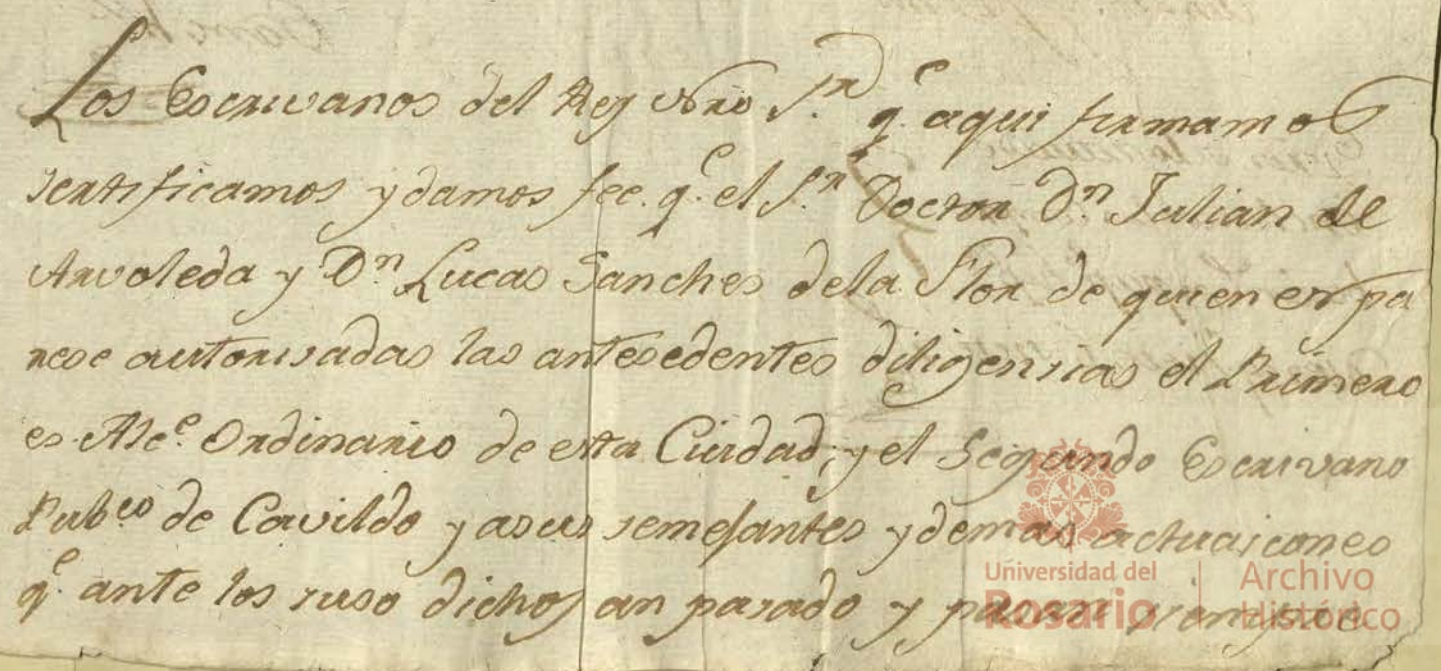 Los Escrivanos del Rey Nro S.r q.e aqui firmamos
sertificamos y damos fee. q.e el S.r Doctor D.n Julian de
Arvoleda y D.n Lucas Sanches dela Flor de quien es pa
rese autorisadas las antesedentes diligensias el Primero
es Alc.e Ordinario de esta Ciudad, y el Segundo Escrivano
Pub.co de Cavildo y asus semejantes y demas actuasiones
q.e ante los suso dichos an pasado y pasan siempre
Universidad del Rosario | Archivo Histórico